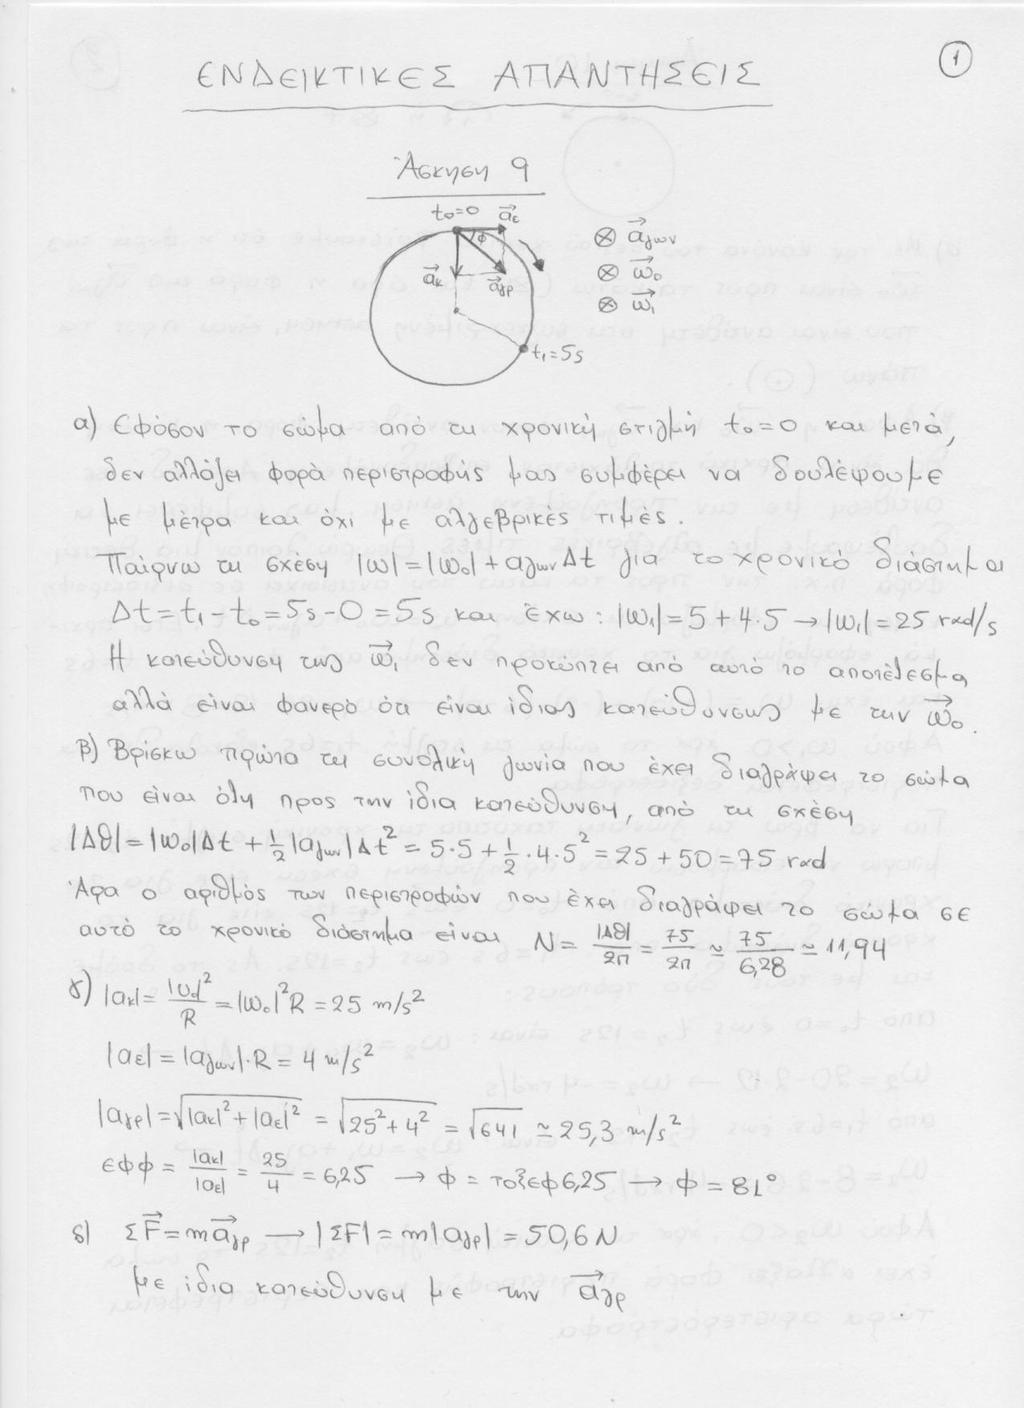 1
ΕΝΔΕΙΚΤΙΚΕΣ ΑΠΑΝΤΗΣΕΙΣ
Άσκηση 9
t₀=0 a⃗ε
φ
a⃗κ a⃗γρ
t₁=5s
⊗ a⃗γων
⊗ ω⃗₀
⊗ ω⃗₁
α) Εφόσον το σώμα από τη χρονική στιγμή t₀=0 και μετά,
δεν αλλάζει φορά περιστροφής μας συμφέρει να δουλέψουμε
με μέτρα και όχι με αλγεβρικές τιμές.
Παίρνω τη σχέση |ω|=|ω₀|+αγων Δt για το χρονικό διάστημα
Δt=t₁-t₀=5s-0=5s και έχω: |ω₁|=5+4·5→|ω₁|=25 rad/s
Η κατεύθυνση της ω⃗₁ δεν προκύπτει από αυτό το αποτέλεσμα
αλλά είναι φανερό ότι είναι ίδιας κατεύθυνσης με την ω⃗₀.
β) Βρίσκω πρώτα τη συνολική γωνία που έχει διαγράψει το σώμα
που είναι όλη προς την ίδια κατεύθυνση, από τη σχέση
|Δθ|=|ω₀|Δt+½|αγων|Δt²=5·5+½·4·5²=25+50=75 rad
Άρα ο αριθμός των περιστροφών που έχει διαγράψει το σώμα σε
αυτό το χρονικό διάστημα είναι N=|Δθ|/2π=75/2π≃75/6,28≃11,94
γ) |aκ|=|υ₀|²/R=|ω₀|²R=25 m/s²
|aε|=|aγων|·R=4 m/s²
|aγρ|=√|aκ|²+|aε|²=√25²+4²=√641≃25,3 m/s²
εφφ=|aκ|/|aε|=25/4=6,25→φ=τοξεφ6,25→φ=81°
δ) ΣF⃗=ma⃗γρ→|ΣF|=m|aγρ|=50,6N
με ίδια κατεύθυνση με την a⃗γρ